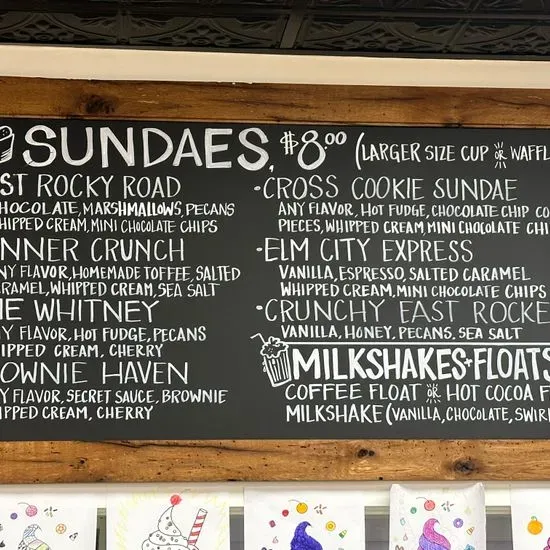 SUNDAES, $8.00 (LARGER SIZE CUP OR WAFFL
ST ROCKY ROAD
HOCOLATE, MARSHMALLOWS, PECANS
HIPPED CREAM, MINI CHOCOLATE CHIPS
NNER CRUNCH
NY FLAVOR, HOMEMADE TOFFEE, SALTED
RAMEL, WHIPPED CREAM, SEA SALT
HE WHITNEY
Y FLAVOR, HOT FUDGE, PECANS
IPPED CREAM, CHERRY
OWNIE HAVEN
Y FLAVOR, SECRET SAUCE, BROWNIE
IPPED CREAM, CHERRY
·CROSS COOKIE SUNDAE
ANY FLAVOR, HOT FUDGE, CHOCOLATE CHIP CO
PIECES, WHIPPED CREAM MINI CHOCOLATE CHI
·ELM CITY EXPRESS
VANILLA, ESPRESSO, SALTED CARAMEL
WHIPPED CREAM, MINI CHOCOLATE CHIPS
·CRUNCHY EAST ROCKE
VANILLA, HONEY, PECANS, SEA SALT
MILKSHAKES+FLOATS
COFFEE FLOAT OR HOT COCOA F
MILKSHAKE (VANILLA, CHOCOLATE, SWIR